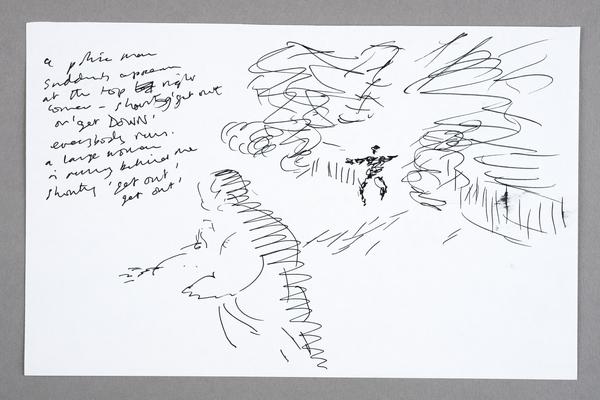 a police man
suddenly appears
at the top right
corner - shouting 'get out
or 'get DOWN'
everybody runs.
a large woman
is running behind me
shouting 'get out!
get out!'